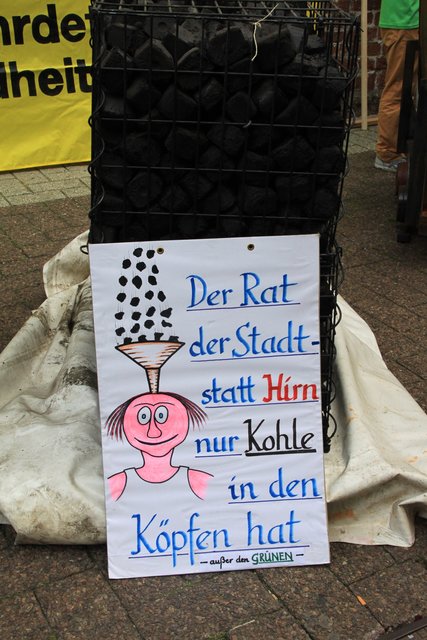 hrdet
dheit
Der Rat
der Stadt-
statt Hirn
nur Kohle
in den
Köpfen hat
- außer den GRÜNEN -